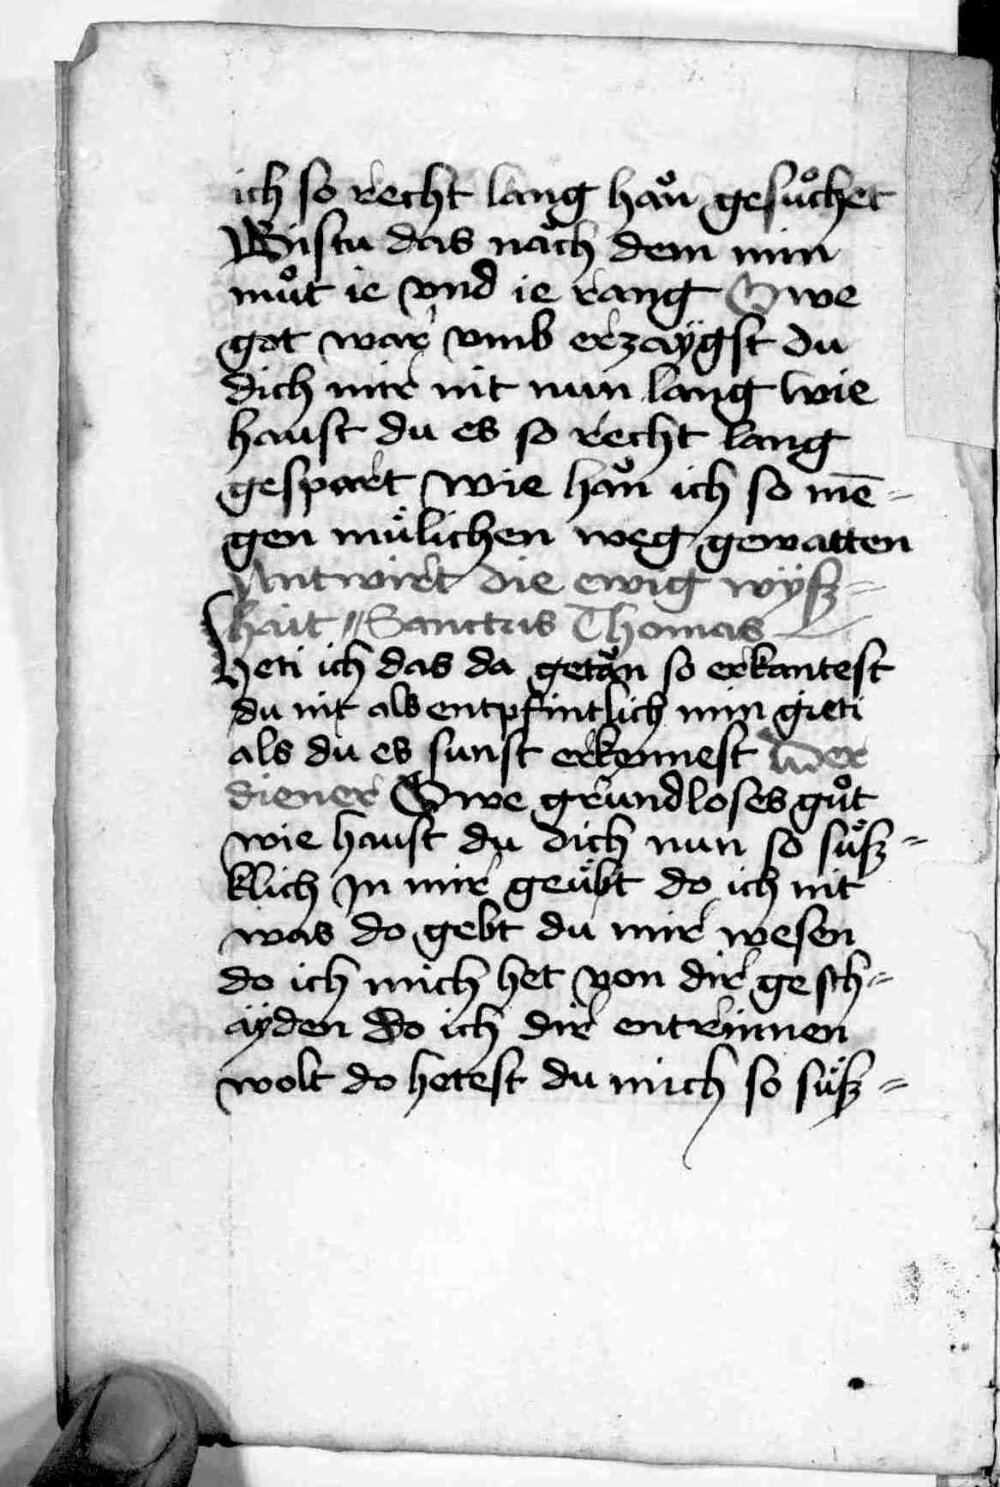 ich so recht lang haͦn gesuͦchet
Bistu das naͧch dem min
muͦt ie vnd ie rang Owe
got war vmb erzaÿgst du
dich mir nit nun lang wie
haust du es so recht lang
gespart wie haͦn ich so mē-
gen muͤlichen weg gewatten
Antwirt die ewig wÿsz-
hait Sanctus Thomas
Heti ich das da getaͧn so erkantest
du nit als entpfintlich min gieti
als du es sunst erkennest Der
diener Owe grundloses guͦt
wie haust du dich nun so suͤsz-
klich In mir geuͤbt do ich nit
was do gebt du mir wesen
do ich mich het von dir gesch-
aÿden Do ich dir entrinnen
wolt do hetest du mich so suͤsz-